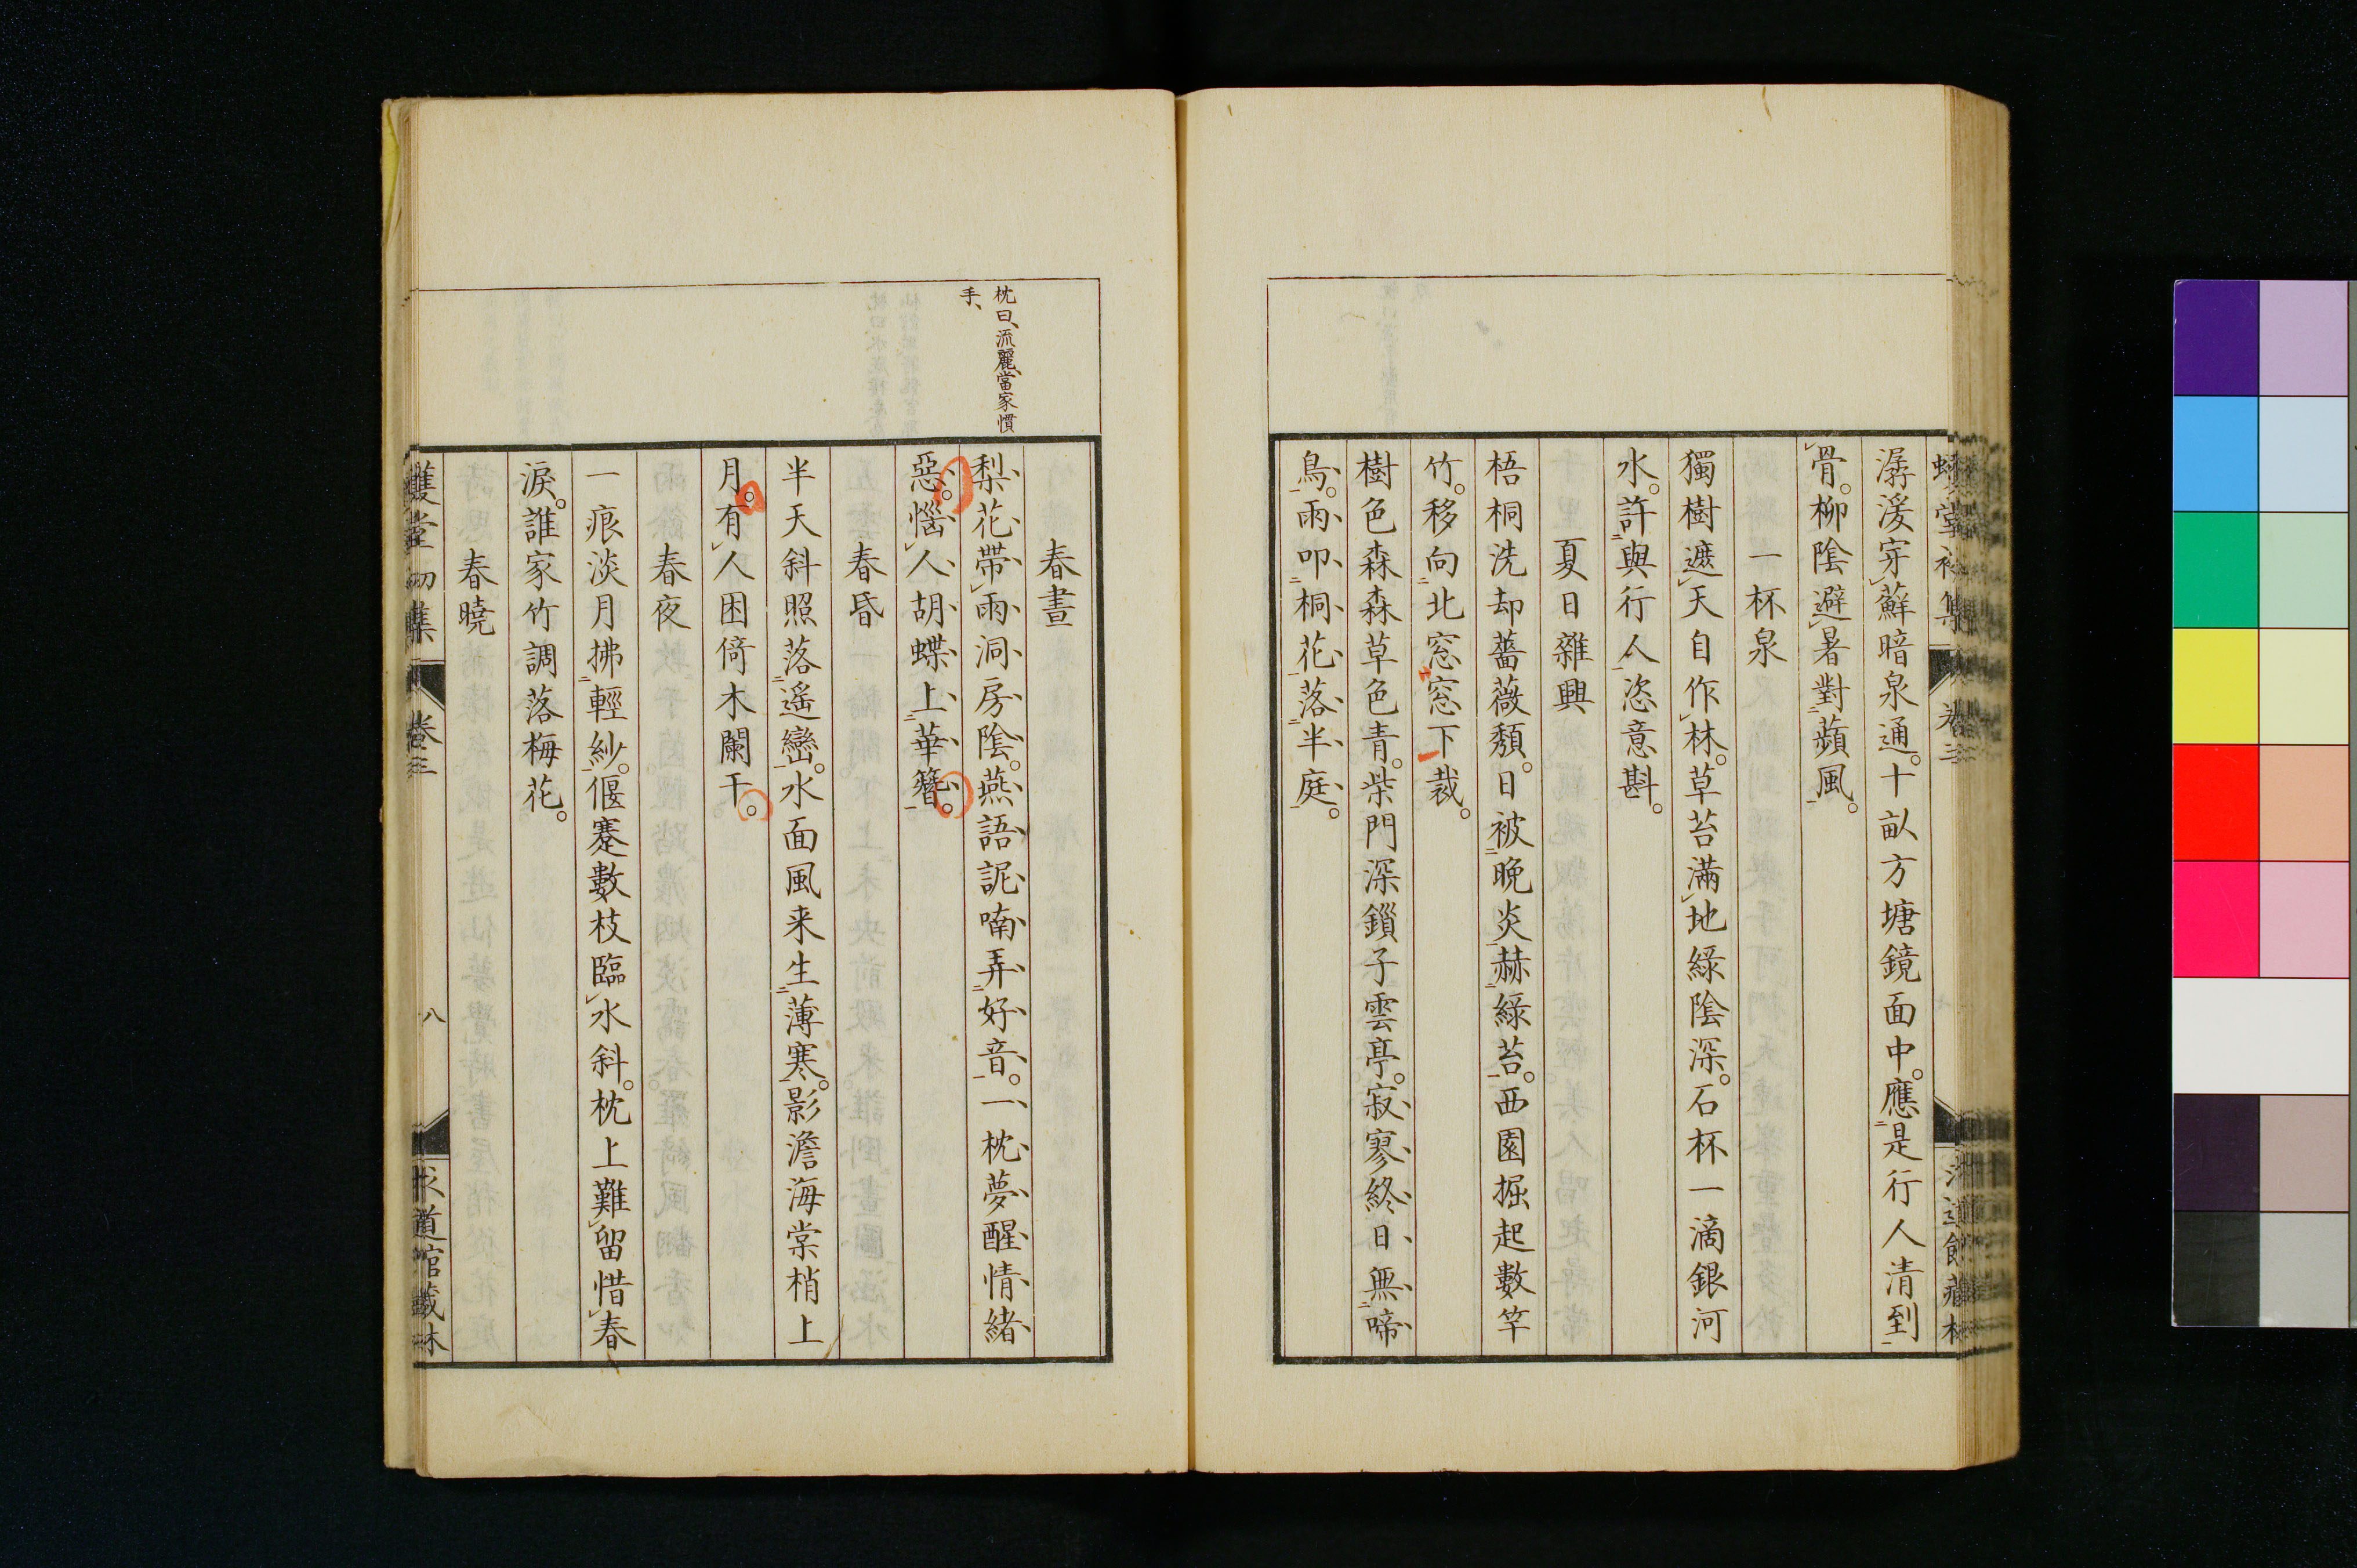 潺湲穿蘚暗泉通。十畝方塘鏡面中。應是行人清到
骨。柳陰避暑對蘋風。
一杯泉
獨樹遮天自作林。草苔滿地綠陰深。石杯一滴銀河
水。許與行人恣意斟。
夏日雜興
梧桐洗却薔薇頹。日被晚炎赫綠苔。西園掘起數竿
竹。移向北窓窓下裁。
樹色森森草色青。柴門深鎖子雲亭。寂寥終日無啼
鳥。雨叩桐花落半庭。
枕曰、流麗、當家慣
手、
春晝
梨花帶雨洞房陰。燕語詑喃弄好音。一枕夢醒情緒
惡。惱人胡蝶上華簪。
春昏
半天斜照落遙巒。水面風来生薄寒。影澹海棠梢上
月。有人困倚木闌干。
春夜
一痕淡月拂輕紗。偃蹇數枝臨水斜。枕上難留惜春
淚。誰家竹調落梅花。
春曉
卷三
八